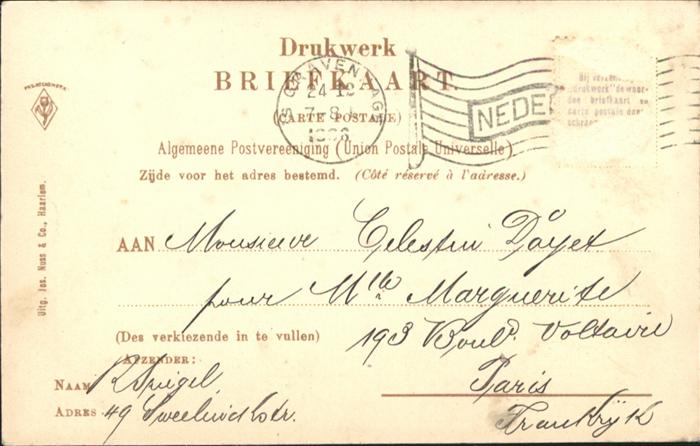 Drukwerk
BRIEFKAART.
(CARTE POSTALE)
Algemeene Postvereeniging (Union Postale Universelle)
Zijde voor het adres bestemd. (Côté réservé à l'adresse.)
'S GRAVENHAGE
24 12
7-8
NEDER
Bij verzen
"drukwerk" de woor-
den briefkaart en
carte postale door-
schrap
Uitg. Jos. Nuss & Co., Haarlem.
AAN Monsieur Celestin Doyet
pour Mlle Marguerite
(Des verkiezende in te vullen) 193 Boul^d. Voltaire
AFZENDER:
NAAM R Spigel Paris
ADRES 49 Sweelinckstr. Frankrijk